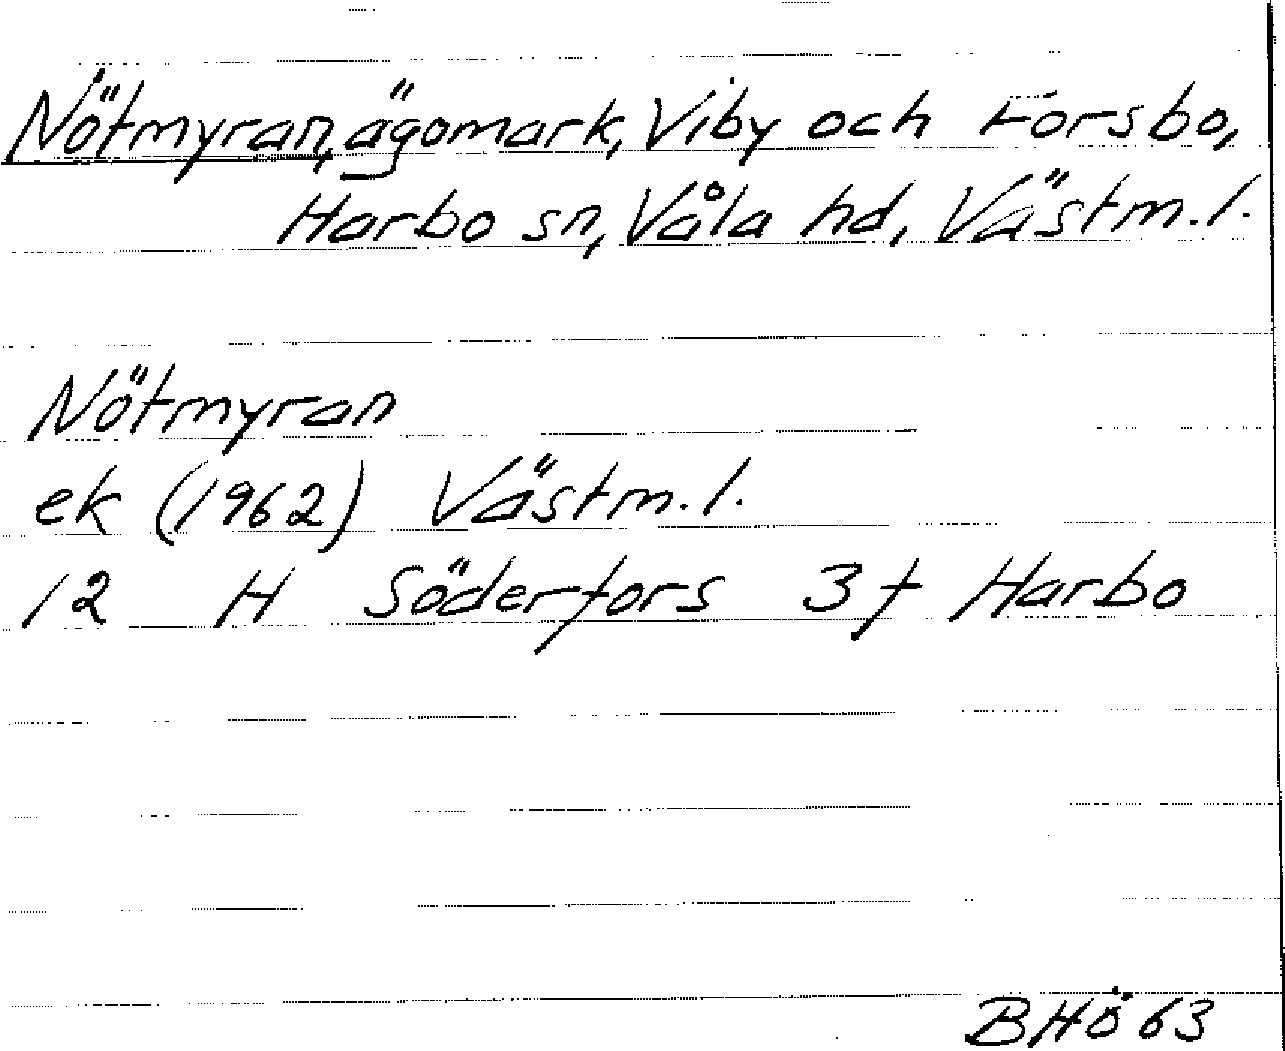 Nötmyran, ägomark, Viby och Forsbo,
Harbo sn, Våla hd, Västm.l.
Nötmyran
ek (1962) Västm.l.
12 H Söderfors 3f Harbo
BHÖ 63